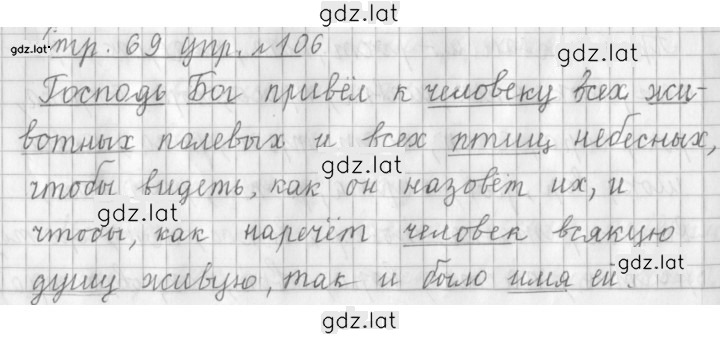 gdz.lat
gdz.lat стр. 69 упр. №106
gdz.lat
Господь Бог привёл к человеку всех жи-
вотных полевых и всех птиц небесных,
gdz.lat
чтобы видеть, как он назовёт их, и
gdz.lat
чтобы, как наречёт человек всякую
gdz.lat
душу живую, так и было имя ей.
gdz.lat